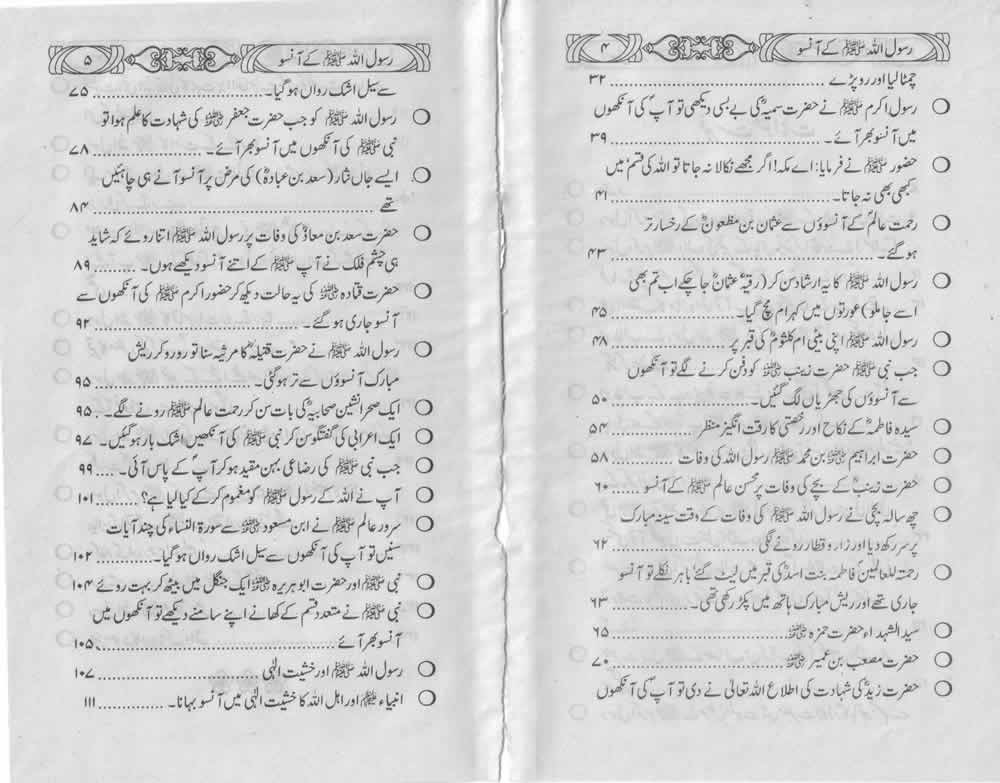 رسول اللہ ﷺ کے آنسو ۴
چمٹا لیا اور رو پڑے ........ ۳۲
رسول اکرم ﷺ نے حضرت سمیہؓ کی بے بسی دیکھی تو آپؐ کی آنکھوں
میں آنسو بھر آئے۔ ........ ۳۹
حضور ﷺ نے فرمایا: اے مکہ! اگر مجھے نکالا نہ جاتا تو اللہ کی قسم میں
کبھی بھی نہ جاتا۔ ........ ۴۱
رحمت عالمؐ کے آنسوؤں سے عثمان بن مظعونؓ کے رخسار تر
ہو گئے۔ ........ ۴۳
رسول اللہ ﷺ کا یہ ارشاد سن کر (رقیہؓ عثمانؓ جا چکے اب تم بھی
اسے جا ملو) عورتوں میں کہرام مچ گیا۔ ........ ۴۵
رسول اللہ ﷺ اپنی بیٹی ام کلثومؓ کی قبر پر ........ ۴۸
جب نبی ﷺ حضرت زینب ؓ کو دفن کرنے لگے تو آنکھوں
سے آنسوؤں کی جھڑیاں لگ گئیں۔ ........ ۵۰
سیدہ فاطمہؓ کے نکاح اور رخصتی کا رقت انگیز منظر ........ ۵۴
حضرت ابراہیم ؓ بن محمد ﷺ رسول اللہ کی وفات ........ ۵۸
حضرت زینبؓ کے بچے کی وفات پر محسن عالم ﷺ کے آنسو ...... ۶۰
چھ سالہ بچی نے رسول اللہ ﷺ کی وفات کے وقت سینہ مبارک
پر سر رکھ دیا اور زار و قطار رونے لگی ........ ۶۲
رحمۃ للعالمینؐ فاطمہ بنت اسدؓ کی قبر میں لیٹ گئے باہر نکلے تو آنسو
جاری تھے اور ریش مبارک ہاتھ میں پکڑ رکھی تھی۔ ........ ۶۳
سید الشہداء حضرت حمزہ ؓ ........ ۶۵
حضرت مصعب بن عمیر ؓ ........ ۷۰
حضرت زیدؓ کی شہادت کی اطلاع اللہ تعالیٰ نے دی تو آپؐ کی آنکھوں
رسول اللہ ﷺ کے آنسو ۵
سے سیل اشک رواں ہو گیا۔ ........ ۷۵
رسول اللہ ﷺ کو جب حضرت جعفر ؓ کی شہادت کا علم ہوا تو
نبی ﷺ کی آنکھوں میں آنسو بھر آئے۔ ........ ۷۸
ایسے جاں نثار (سعد بن عبادہؓ) کی مرض پر آنسو آنے ہی چاہئیں
تھے ........ ۸۴
حضرت سعد بن معاذؓ کی وفات پر رسول اللہ ﷺ اتنا روئے کہ شاید
ہی چشم فلک نے آپ ﷺ کے اتنے آنسو دیکھے ہوں۔ ........ ۸۹
حضرت قتادہ ؓ کی یہ حالت دیکھ کر حضور اکرم ﷺ کی آنکھوں سے
آنسو جاری ہو گئے۔ ........ ۹۲
رسول اللہ ﷺ نے حضرت قتیلہؓ کا مرثیہ سنا تو رو رو کر ریش
مبارک آنسوؤں سے تر ہو گئی۔ ........ ۹۵
ایک صحرا نشین صحابیہؓ کی بات سن کر رحمت عالم ﷺ رونے لگے۔ ... ۹۵
ایک اعرابی کی گفتگو سن کر نبی ﷺ کی آنکھیں اشک بار ہو گئیں۔ ...... ۹۷
جب نبی ﷺ کی رضاعی بہن مقید ہو کر آپؐ کے پاس آئی۔ ...... ۹۹
آپ نے اللہ کے رسول ﷺ کو مغموم کر کے کیا لیا ہے؟ ........ ۱۰۱
سرور عالم ﷺ نے ابن مسعود ؓ سے سورۃ النساء کی چند آیات
سنیں تو آپ کی آنکھوں سے سیل اشک رواں ہو گیا۔ ........ ۱۰۲
نبی ﷺ اور حضرت ابوہریرہ ؓ ایک جنگل میں بیٹھ کر بہت روئے ۱۰۴
نبی ﷺ نے متعدد قسم کے کھانے اپنے سامنے دیکھے تو آنکھوں میں
آنسو بھر آئے ........ ۱۰۵
رسول اللہ ﷺ اور خشیت الٰہی ........ ۱۰۷
انبیاء اور اہل اللہ کا خشیت الٰہی میں آنسو بہانا۔ ........ ۱۱۱